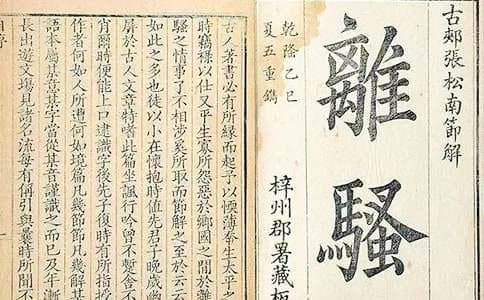 古郟張松南節解
離騷
乾隆乙巳
夏五重鐫
梓州郡署藏板
古著書必有所緣而起予以愞薄忝生太平之
時竊祿以仕又平生寡所怨惡於鄉國之間於離
騷之情事了不相涉奚所取而節解之至於云云
如此之多也徒以小在懷抱時值先君子晚歲
屏於古人文章特嗜此篇坐諷行吟曾不蹔舍不
肖爾時便能上口逮識字後先子復時有所指授
離者何如人所遭何如境篇凡幾節節凡幾解某
語本屬某意某字當從某音謹識之而已及年漸
長出遊文場見諸名流每有偁引與曩時所聞不
自序